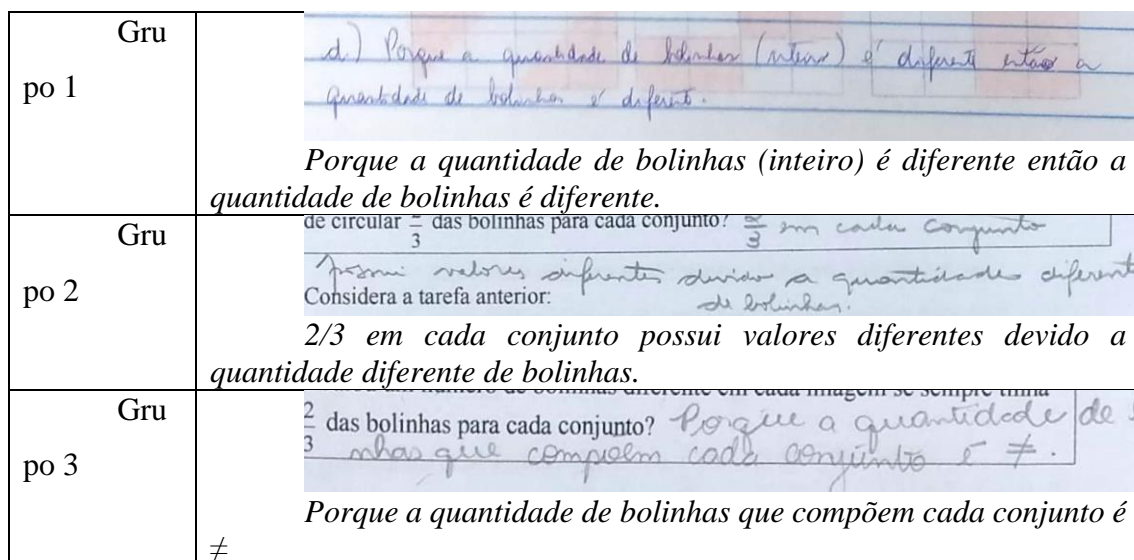 Gru
po 1
d) Porque a quantidade de bolinhas (inteiro) é diferente então a
quantidade de bolinhas é diferente.
Porque a quantidade de bolinhas (inteiro) é diferente então a
quantidade de bolinhas é diferente.
Gru
po 2
de circular 2/3 das bolinhas para cada conjunto? 2/3 em cada conjunto
possui valores diferentes devido a quantidades diferent
de bolinhas.
Considera a tarefa anterior:
2/3 em cada conjunto possui valores diferentes devido a
quantidade diferente de bolinhas.
Gru
po 3
2/3 das bolinhas para cada conjunto? Porque a quantidade de
nhas que compoem cada conjunto é ≠.
Porque a quantidade de bolinhas que compõem cada conjunto é
≠